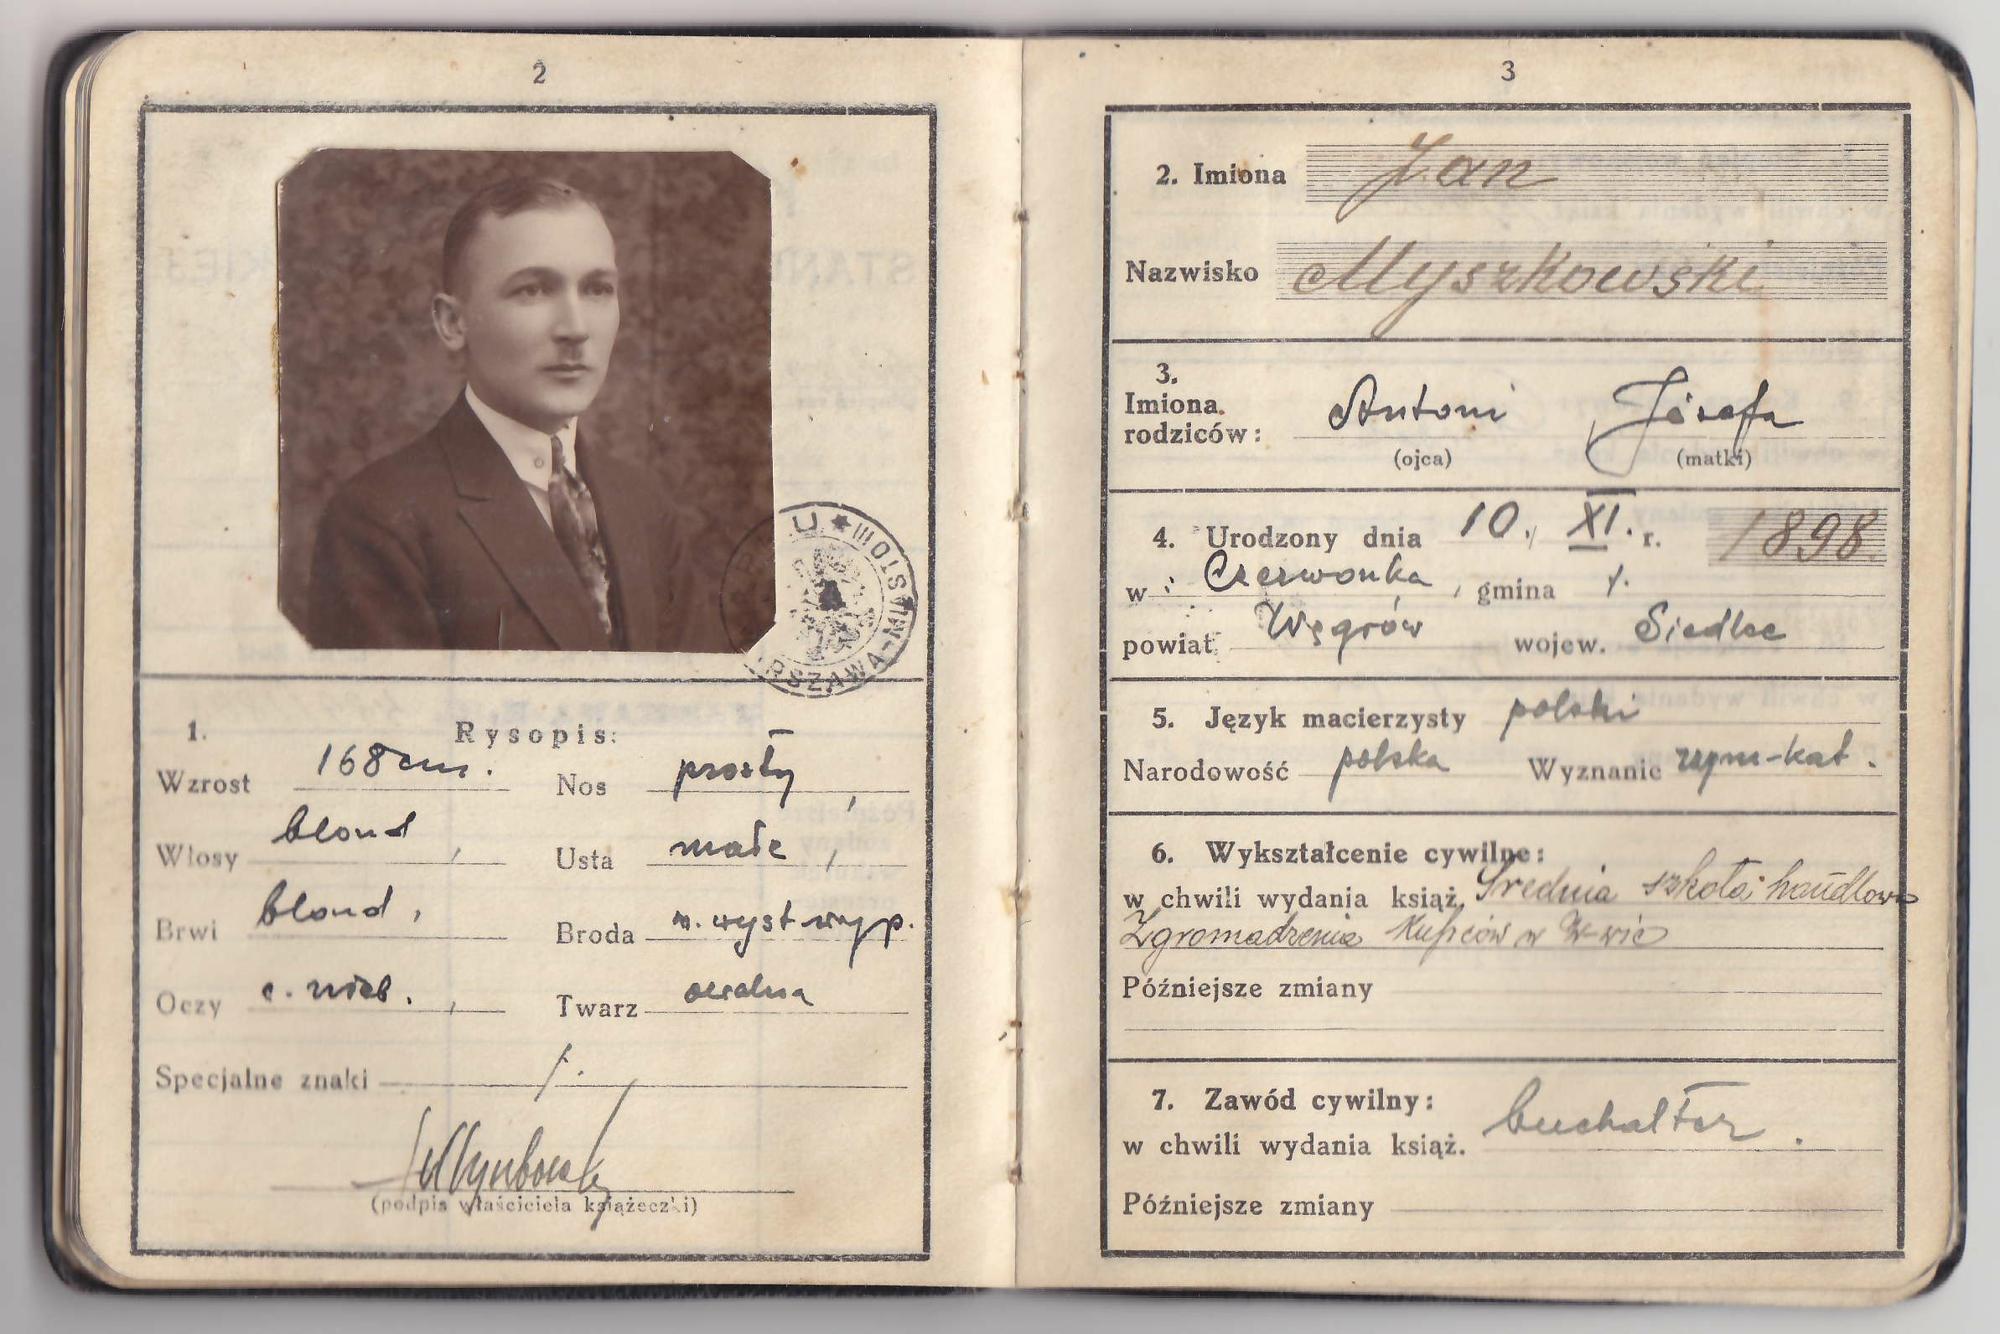 2
1. Rysopis:
Wzrost 168 cm. Nos prosty,
Włosy blond, Usta małe,
Brwi blond, Broda
Oczy c. nieb., Twarz owalna
Specjalne znaki /.
(podpis właściciela książeczki)
U ★ MIASTO III
WARSZAWA
3
2. Imiona Jan
Nazwisko Myszkowski
3.
Imiona
rodziców: Antoni Józefa
(ojca) (matki)
4. Urodzony dnia 10. XI. r. 1898.
w: Czerwonka, gmina /.
powiat Węgrów wojew. Siedlce
5. Język macierzysty polski
Narodowość polska Wyznanie rzym-kat.
6. Wykształcenie cywilne:
w chwili wydania książ. Średnia szkoła handlowa
Zgromadzenia Kupców w W-wie
Późniejsze zmiany
7. Zawód cywilny:
w chwili wydania książ. buchalter.
Późniejsze zmiany